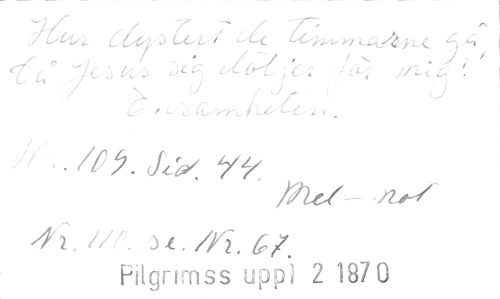 Hur dystert de timmarne gå,
Då Jesus sig döljer för mig!
Ensamheten.
Nr. 109. Sid. 44.
Mel-not
Nr. 110. se. Nr. 67.
Pilgrimss uppl 2 1870